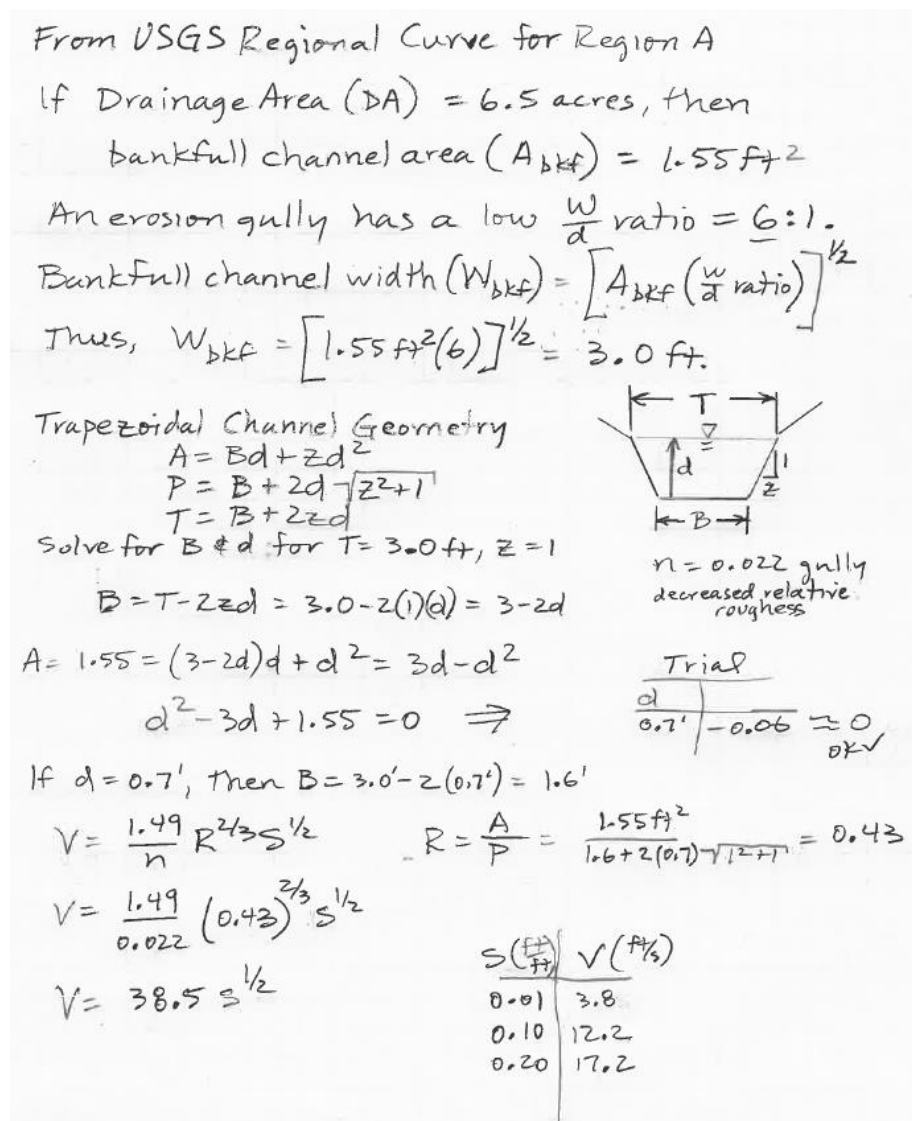 From USGS Regional Curve for Region A
If Drainage Area (DA) = 6.5 acres, then
bankfull channel area (A_bkf) = 1.55 ft²
An erosion gully has a low w/d ratio = 6:1.
Bankfull channel width (W_bkf) = [A_bkf (w/d ratio)]^1/2
Thus, W_bkf = [1.55 ft²(6)]^1/2 = 3.0 ft.
Trapezoidal Channel Geometry
A = Bd + zd²
P = B + 2d √z²+1
T = B + 2zd
Solve for B & d for T = 3.0 ft, z = 1
B = T - 2zd = 3.0 - 2(1)(d) = 3 - 2d
T
d
1
z
B
n = 0.022 gully
decreased relative
roughess
A = 1.55 = (3-2d)d + d² = 3d - d²
d² - 3d + 1.55 = 0 ⇒
Trial
d
0.7' | -0.06 ≈ 0
OK✓
If d = 0.7', then B = 3.0' - 2(0.7') = 1.6'
V = 1.49/n R^2/3 S^1/2
R = A/P = 1.55 ft² / 1.6 + 2(0.7) √1²+1 = 0.43
V = 1.49/0.022 (0.43)^2/3 S^1/2
V = 38.5 S^1/2
S (ft/ft) | V (ft/s)
0.01 | 3.8
0.10 | 12.2
0.20 | 17.2